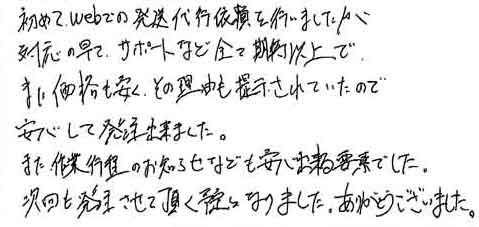 初めて、webでの発送代行依頼を行いましたが
対応の早て、サポートなど全て期待以上で、
また価格も安く、その理由も提示されていたので
安心して発注出来ました。
また作業行程のお知らせなども安心出来る要素でした。
次回も発注させて頂く予定になりました。ありがとうございました。